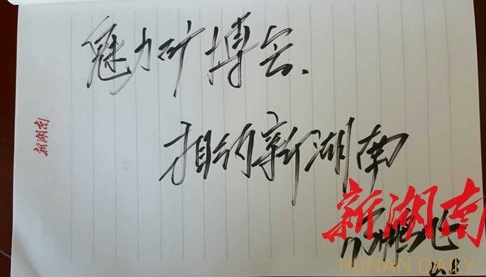 魅力矿博会、
相约新湖南
新湖南
新湖南
HUNAN DAILY